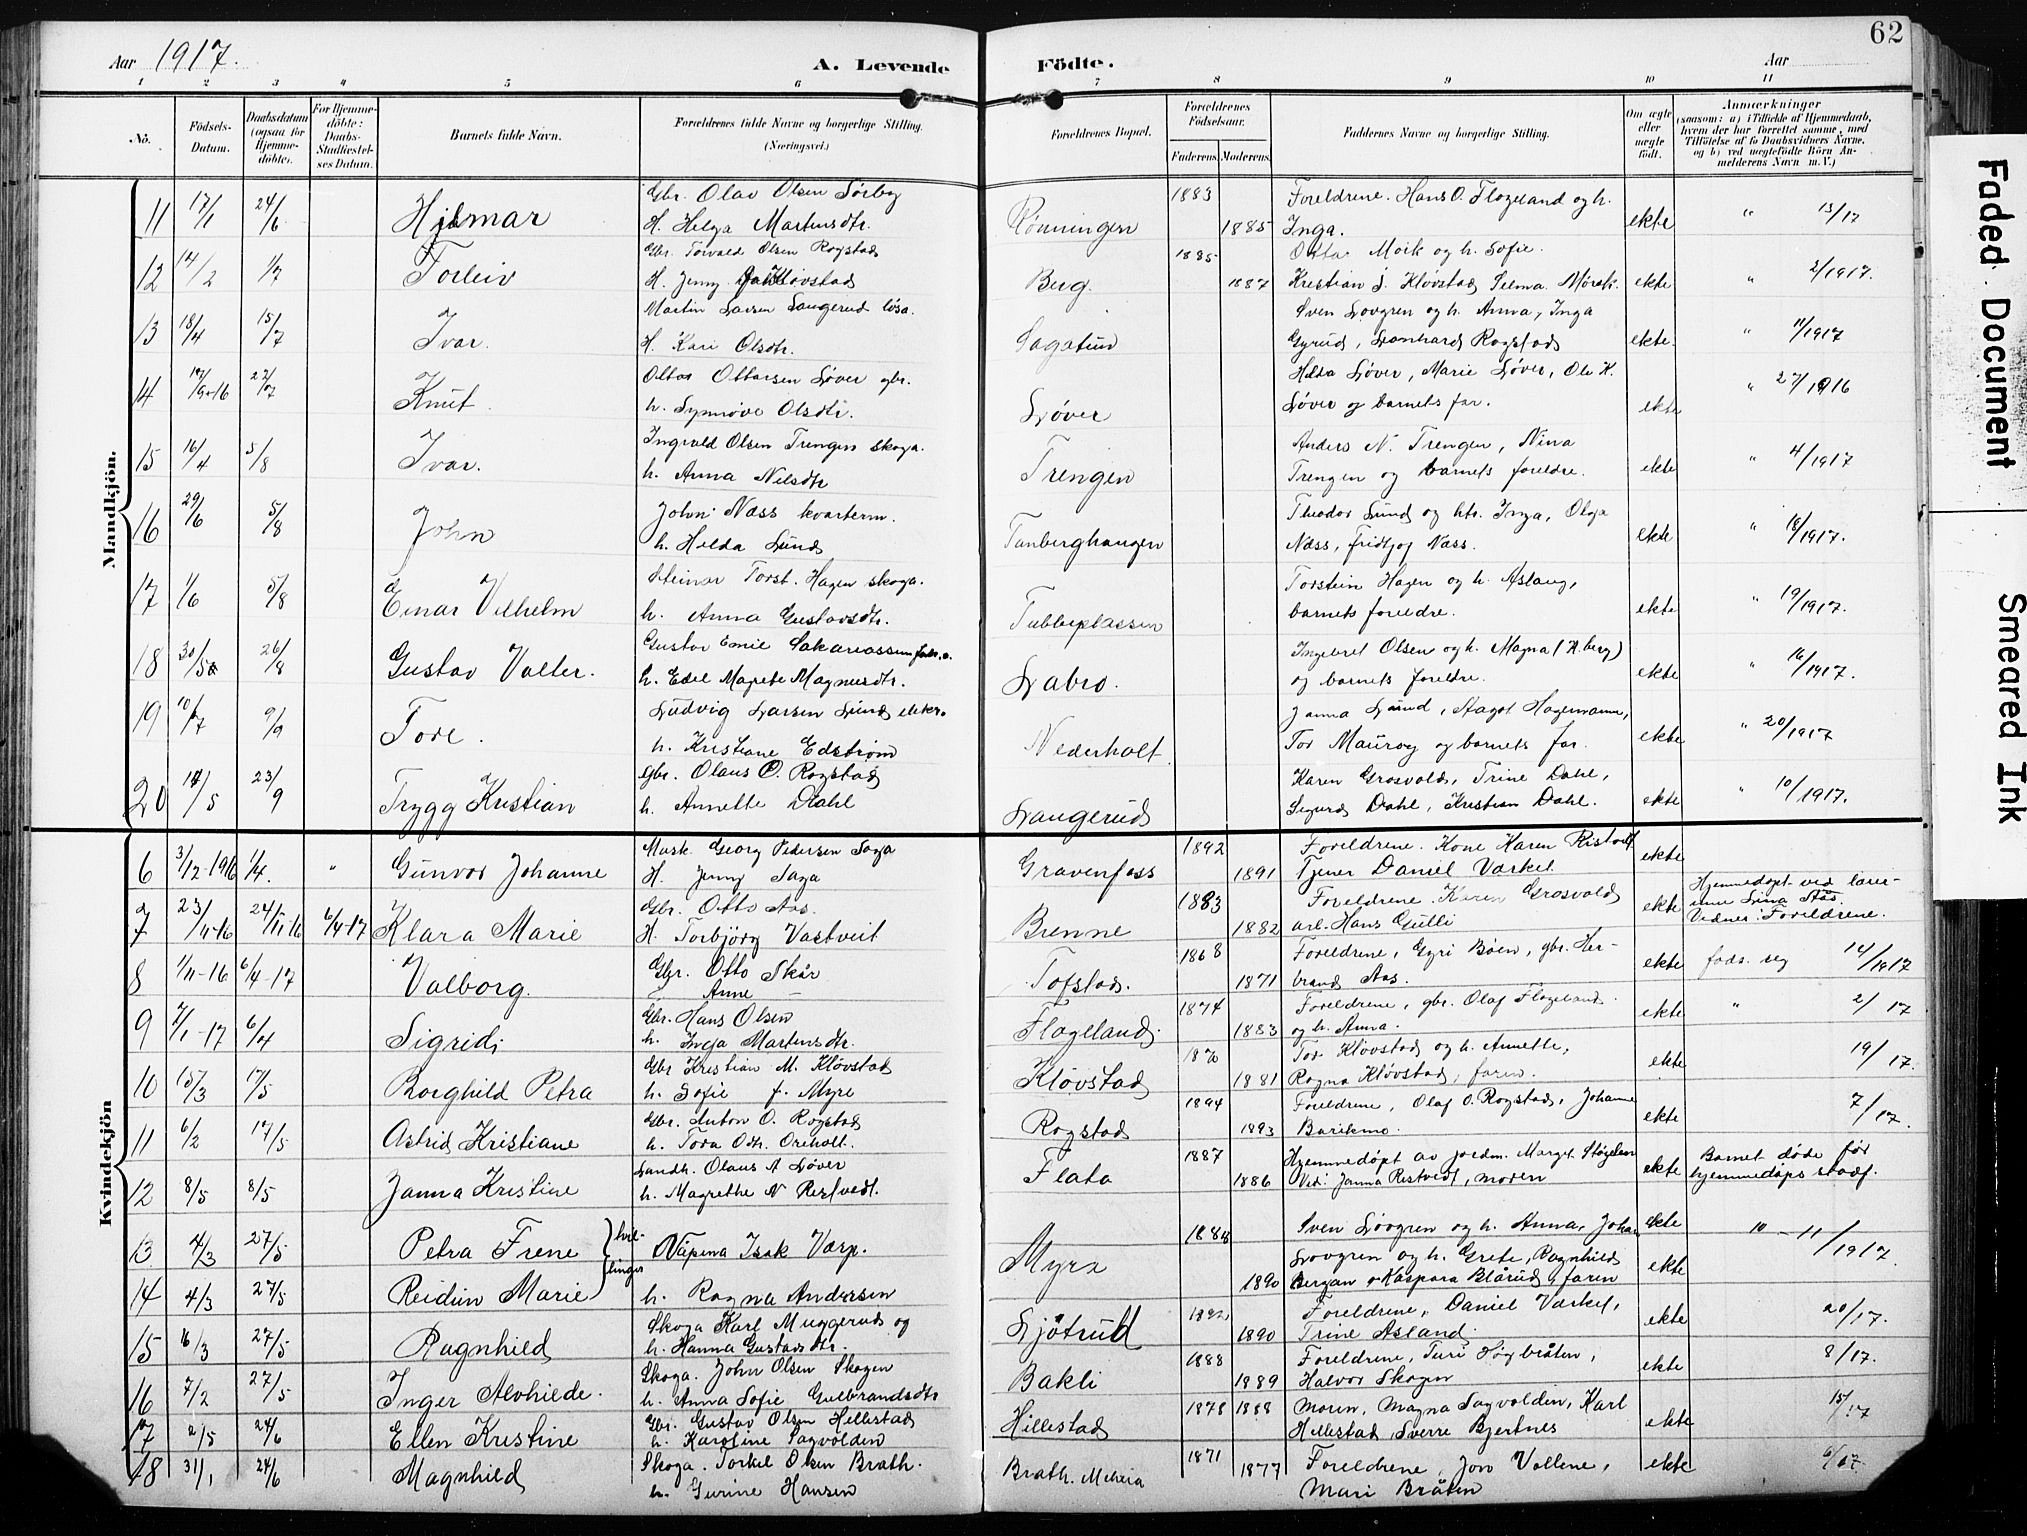 62
Aar 1917. A. Levende Födte. Aar
1 2 3 4 5 6 7 8 9 10 11
No. Födsels-Datum. Daabsdatum (ogsaa for Hjemmedöbte). For Hjemmedöbte: Daabs-Stadfæstelses Datum. Barnets fulde Navn. Forældrenes fulde Navne og borgerlige Stilling. (Næringsvei.) Forældrenes Bopæl. Forældrenes Födselsaar. Faderens. Moderens. Faddernes Navne og borgerlige Stilling. Om ægte eller uægte født. Anmærkninger (saasom: a) i Tilfælde af Hjemmedaab, hvem der har forrettet samme, med Tilföielse af to Daabsvidners Navne, og b) ved uægtefödte Börn Anmelderens Navn m. V.)
Mandkjön.
11 17/1 24/6 Hjalmar Gbr. Olav Olsen Sörby 1883 Foreldrene. Hans O. Flogeland og h.
H. Helga Martinsdtr. Rønningen 1885 Inga. ekte " 13/17
12 14/2 1/7 Torleiv Gbr. Torvald Olsen Rogstad 1885 Otto Moik og h. Sofie.
H. Jenny Kløvstad Berg. 1887 Kristian J. Kløvstad, Selma Mörk. ekte " 2/1917.
13 18/4 15/7 Ivar. Martin Larsen Langerud lösa. Sven Løvgren og h. Anna, Inga
H. Kari Olsdtr. Sagatun Gyrud, Leonhard Rogstad ekte. " 11/1917
14 17/9-16 22/7 Knut. Ottar Ottarsen Løver gbr. Hilda Løver, Marie Løver, Ole K.
h. Synnøve Olsdtr. Løver Løver og barnets far. ekte " 27/1916
15 16/4 5/8 Ivar. Ingvald Olsen Trengen skoga. Anders N. Trengen, Nina
h. Anna Nilsdtr Trengen Trengen og barnets foreldre. ekte " 4/1917
16 29/6 5/8 John John Næss kvarterm. Theodor Lund og h. Inga, Olga
h. Hilda Lund Tanberghaugen Næss, Fridtjof Næss. ekte " 18/1917.
17 1/6 5/8 Einar Vilhelm Steinar Torst. Hagen skoga. Torstein Hagen og h. Aslaug,
h. Anna Gustavsdtr. Tubbeplassen barnets foreldre. ekte " 19/1917.
18 30/5 26/8 Gustav Valter. Gustav Emil Sakariassen fabr.a. Ingebret Olsen og h. Magna (H.berg)
h. Edel Magrete Magnusdtr. Labro. og barnets foreldre. ekte " 16/1917.
19 10/7 9/9 Tore. Ludvig Larsen Lund elektr. Janna Lund, Aagot Hagemann,
h. Kristiane Edstrøm Nederholt Tor Mauroy og barnets far. ekte " 20/1917
20 14/5 23/9 Trygg Kristian gbr. Olaus O. Rogstad Karen Grosvold, Trine Dahl,
h. Annette Dahl Langerud Sigurd Dahl, Kristian Dahl. ekte " 10/1917.
Kvindekjön
6 3/12-1916 1/4. " Gunvor Johanne Mask. Georg Pedersen Saga 1892 Foreldrene. Kone Karen Ristvedt
H. Jenny Saga Gravenfoss 1891 Tjener Daniel Varkel. ekte
7 23/11-16 24/11-16 6/4-17 Klara Marie Gbr. Otto Aas. 1883 Foreldrene. Karen Grosvold
H. Torbjörg Vastveit Brenne 1882 arb. Hans Gulli ekte Hjemmedöpt ved lærerinne Lina Aas. Vidner: Foreldrene.
8 1/11-16 6/4-17 Valborg. Gbr. Otto Skår 1868 Foreldrene, Gyri Bøen, gbr. Her-
Anne Tofstad. 1871 brand Aas. ekte föds. reg 14/1917
9 7/1-17 6/4 Sigrid, Gbr. Hans Olsen 1874 Foreldrene, gbr. Olaf Flogeland
h. Inga Martinsdtr. Flogeland. 1883 og h. Anna. ekte " 2/17
10 15/3 17/5 Borghild Petra Gbr Kristian M. Kløvstad 1870 Tor Kløvstad og h. Annette,
h. Sofie f. Myre Kløvstad 1881 Ragna Kløvstad, faren. ekte 19/17.
11 6/2 17/5 Astrid Kristiane Gbr. Anton O. Rogstad 1894 Foreldrene, Olaf O. Rogstad, Johanne
h. Tora Odh. Oreholt. Rogstad 1893 Barikmo. ekte 7/17.
12 8/5 8/5 Janna Kristine Landh. Olaus A Løver 1887 Hjemmedöpt av jordm. Margit Støylen
h. Magrethe N Ristvedt. Flata 1886 Vid: Janna Ristvedt, moren ekte Barnet døde før hjemmedåps stadf.
13 4/3 27/5 Petra Irene } tvil- Våpenm Isak Varp. 1888 Sven Løvgren og h. Anna, Johan ekte 10-11/1917.
14 4/3 27/5 Reidun Marie } linger h. Ragna Andersen Myra 1890 Løvgren og h. Grete, Ragnhild
Bergan & Kaspara Blårud, faren ekte
15 16/3 27/5 Ragnhild Skoga Karl Muggerud og 1892 Foreldrene, Daniel Varkel,
h. Hanna Gustavsdtr. Ljøtrud 1890 Trine Asland. ekte 20/17.
16 7/2 27/5 Inger Alvhilde. Skoga. John Olsen Skogen 1888 Foreldrene, Turi Høgbråten,
h. Anna Sofie Gulbrandsdtr Bakli 1889 Halvor Skogen ekte 8/17.
17 2/5 24/6 Ellen Kristine Gbr. Gustav Olsen Hillestad 1878 1888 Moren, Magna Sagvolden, Karl
h. Karoline Sagvolden Hillestad Hillestad, Sverre Bjertnes ekte 15/17
18 31/1 24/6 Magnhild Skoga. Torkel Olsen Bråth. 1871 1877 Foreldrene, Jon Vollene,
h. Gurine Hansen Bråth. Meheia Mari Bråten ekte 6/17
Faded Document
Smeared Ink